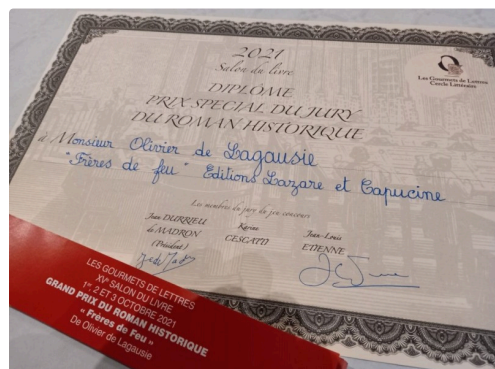 2021
Salon du livre
DIPLÔME
PRIX SPECIAL DU JURY
DU ROMAN HISTORIQUE
Les Gourmets de Lettres
Cercle Littéraire
à Monsieur Olivier de Lagausie
"Frères de feu" Editions Lazare et Capucine
Les membres du jury du jeu concours
Jean DURRIEU
de MADRON
(Président)
Karine
CESCATTI
Jean-Louis
ETIENNE
LES GOURMETS DE LETTRES
XVe SALON DU LIVRE
1er, 2 ET 3 OCTOBRE 2021
GRAND PRIX DU ROMAN HISTORIQUE
« Frères de Feu »
De Olivier de Lagausie